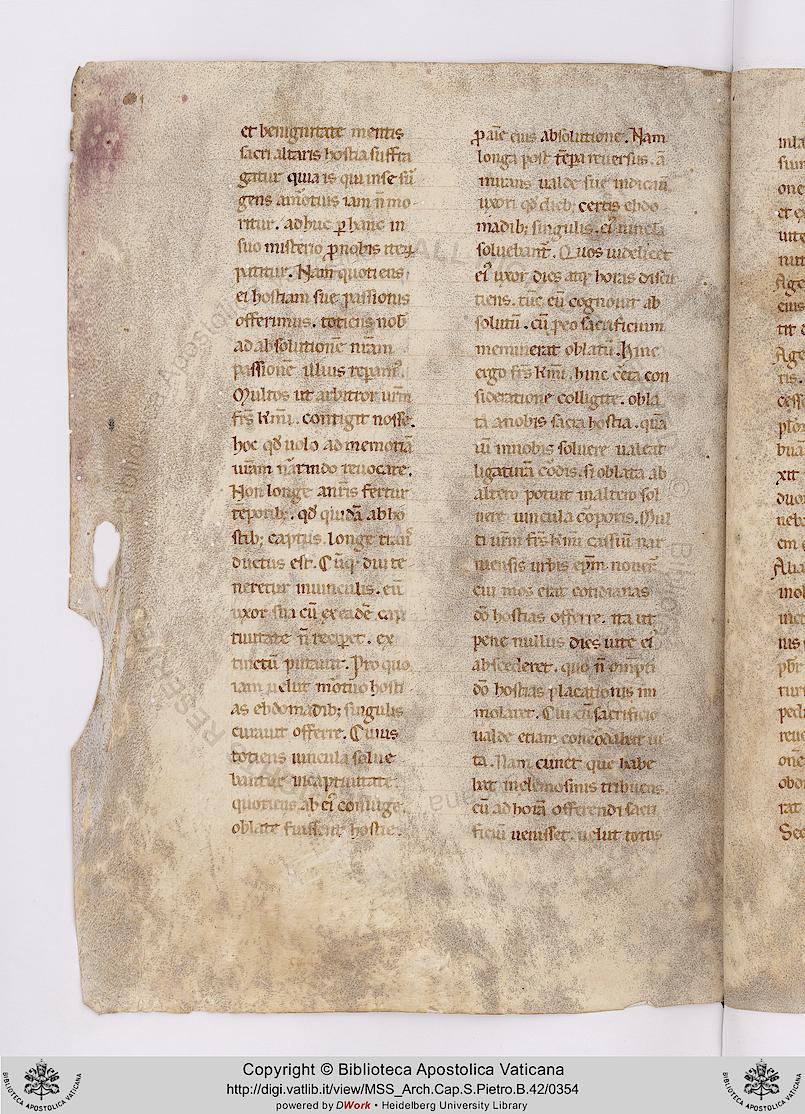 et benignitate mentis
sacri altaris hostia suffra
gatur quia is qui inse sū
gens amortuis iam n̄ mo
ritur. adhuc ꝑ hanc in
suo misterio ꝓ nobis iteꝝ
patitur. Nam quotiens
ei hostiam sue passionis
offerimus. totiens nob̄
ad absolutionē nr̄am
passionē illius reparam᾽.
Multos ut arbitror ur̄m
fr̄s km̄i. contigit nosse.
hoc qđ uolo ad memoriā
ur̄am narrando reuocare.
Non longe anr̄is fertur
tēporib;. qđ quidā abho
stib; captus. longe tran̄
ductus est. Cūq; diu te
neretur inuinculis. eū
uxor sua cū ex eadē cap
tiuitate n̄ reciꝑet. ex
tinctū putauit. Pro quo
iam uelut mortuo hosti
as ebdomadib; singulis
curauit offerre. Cuius
totiens uincula solue
bantur incaptiuitate
quotiens ab ei᾽ coniuge.
oblate fuissent hostie.
ꝓ anīe eius absolutione. Nam
longa post tēpa reuersus. a
mirans ualde sue indicauit
uxori qđ dieb; certis ebdo
madib; singulis. ei᾽ uincla
soluebant. Quos uidelicet
ei᾽ uxor dies atq; horas discu
tiens. tūc eū cognouit ab
solutū. cū ꝓ eo sacrificium
meminerat oblatū. Hinc
ergo fr̄s km̄i. hinc certa con
sideratione colligite. obla
ta anobis sacra hostia. quā
tū innobis soluere ualeat
ligaturā cordis. si oblata ab
altero potuit inaltero sol
uere uincula corporis. Mul
ti ur̄m fr̄s km̄i cassiū nar
niensis urbis ep̄m nouer̄
cui mos erat cotidianas
dō hostias offerre. ita ut
pene nullus dies uite ei᾽
abscederet. quo n̄ omp̄ti
dō hostias placationis im
molaret. Cui cū sacrificio
ualde etiam concordabat ui
ta. Nam cuncta que habe
bat inelemosinis tribuens.
cū ad horā offerendi sacri
ficii uenisset. uelut totus
Copyright © Biblioteca Apostolica Vaticana
http://digi.vatlib.it/view/MSS_Arch.Cap.S.Pietro.B.42/0354
powered by DWork • Heidelberg University Library